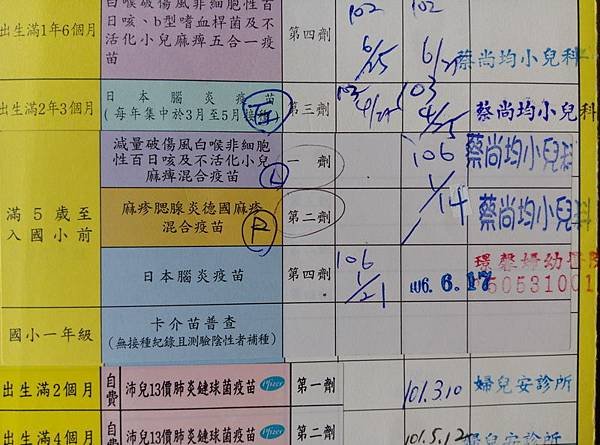 白喉破傷風非細胞性百
出生滿1年6個月
日咳、b型嗜血桿菌及不
活化小兒麻痺五合一疫
苗
第四劑
102
6/25
102
6/25
蔡尚均小兒科
出生滿2年3個月
日本腦炎疫苗
(每年集中於3月至5月接種)
第三劑
103
4/25
103
4/25
蔡尚均小兒科
滿5歲至
入國小前
減量破傷風白喉非細胞
性百日咳及不活化小兒
麻痺混合疫苗
L
一劑
106
1/14
蔡尚均小兒科
麻疹腮腺炎德國麻疹
混合疫苗
R
第二劑
蔡尚均小兒科
日本腦炎疫苗
第四劑
106
1/21
106. 6.17
環馨婦幼醫院
國小一年級
卡介苗普查
(無接種紀錄且測驗陰性者補種)
出生滿2個月
自費
沛兒13價肺炎鏈球菌疫苗
Pfizer
第一劑
101.3.10
婦兒安診所
出生滿4個月
自費
沛兒13價肺炎鏈球菌疫苗
Pfizer
第二劑
101.5.12
婦兒安診所